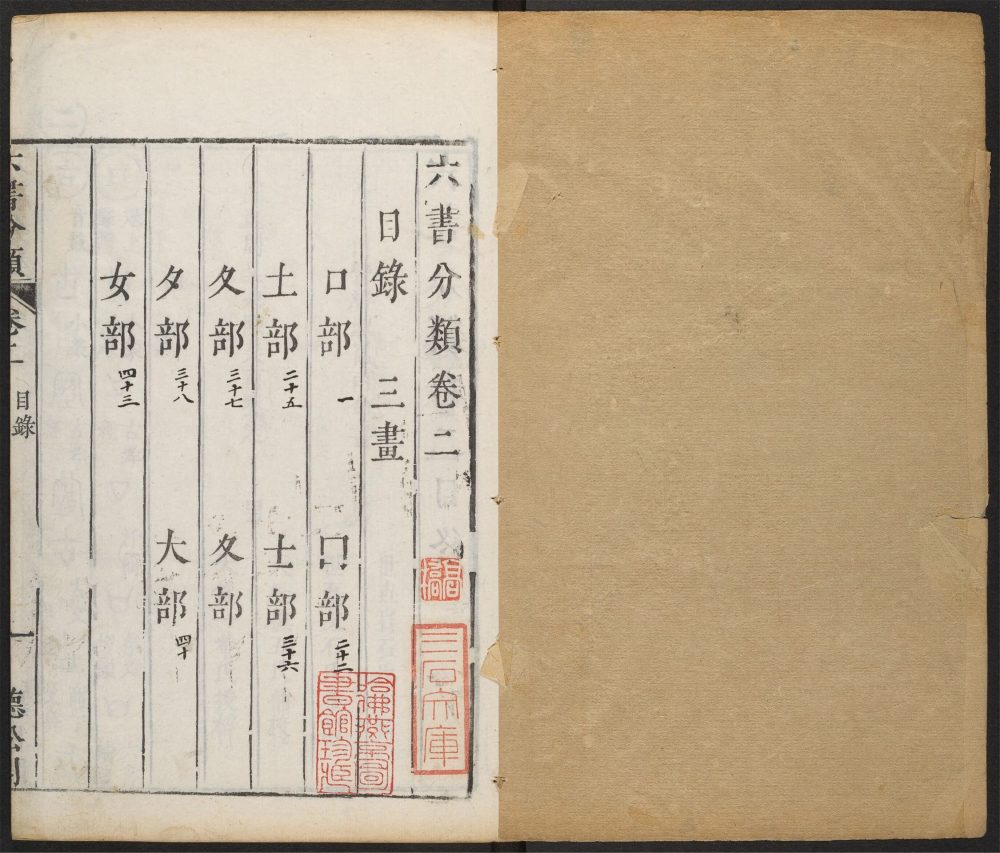 六書分類卷二
目錄 三畫
口部 一 囗部 二十二
土部 二十五 士部 三十六
夂部 三十七 夊部
夕部 三十八 大部 四十
女部 四十三
六書分類 卷二 目錄 一
哈佛燕京圖書館珍藏